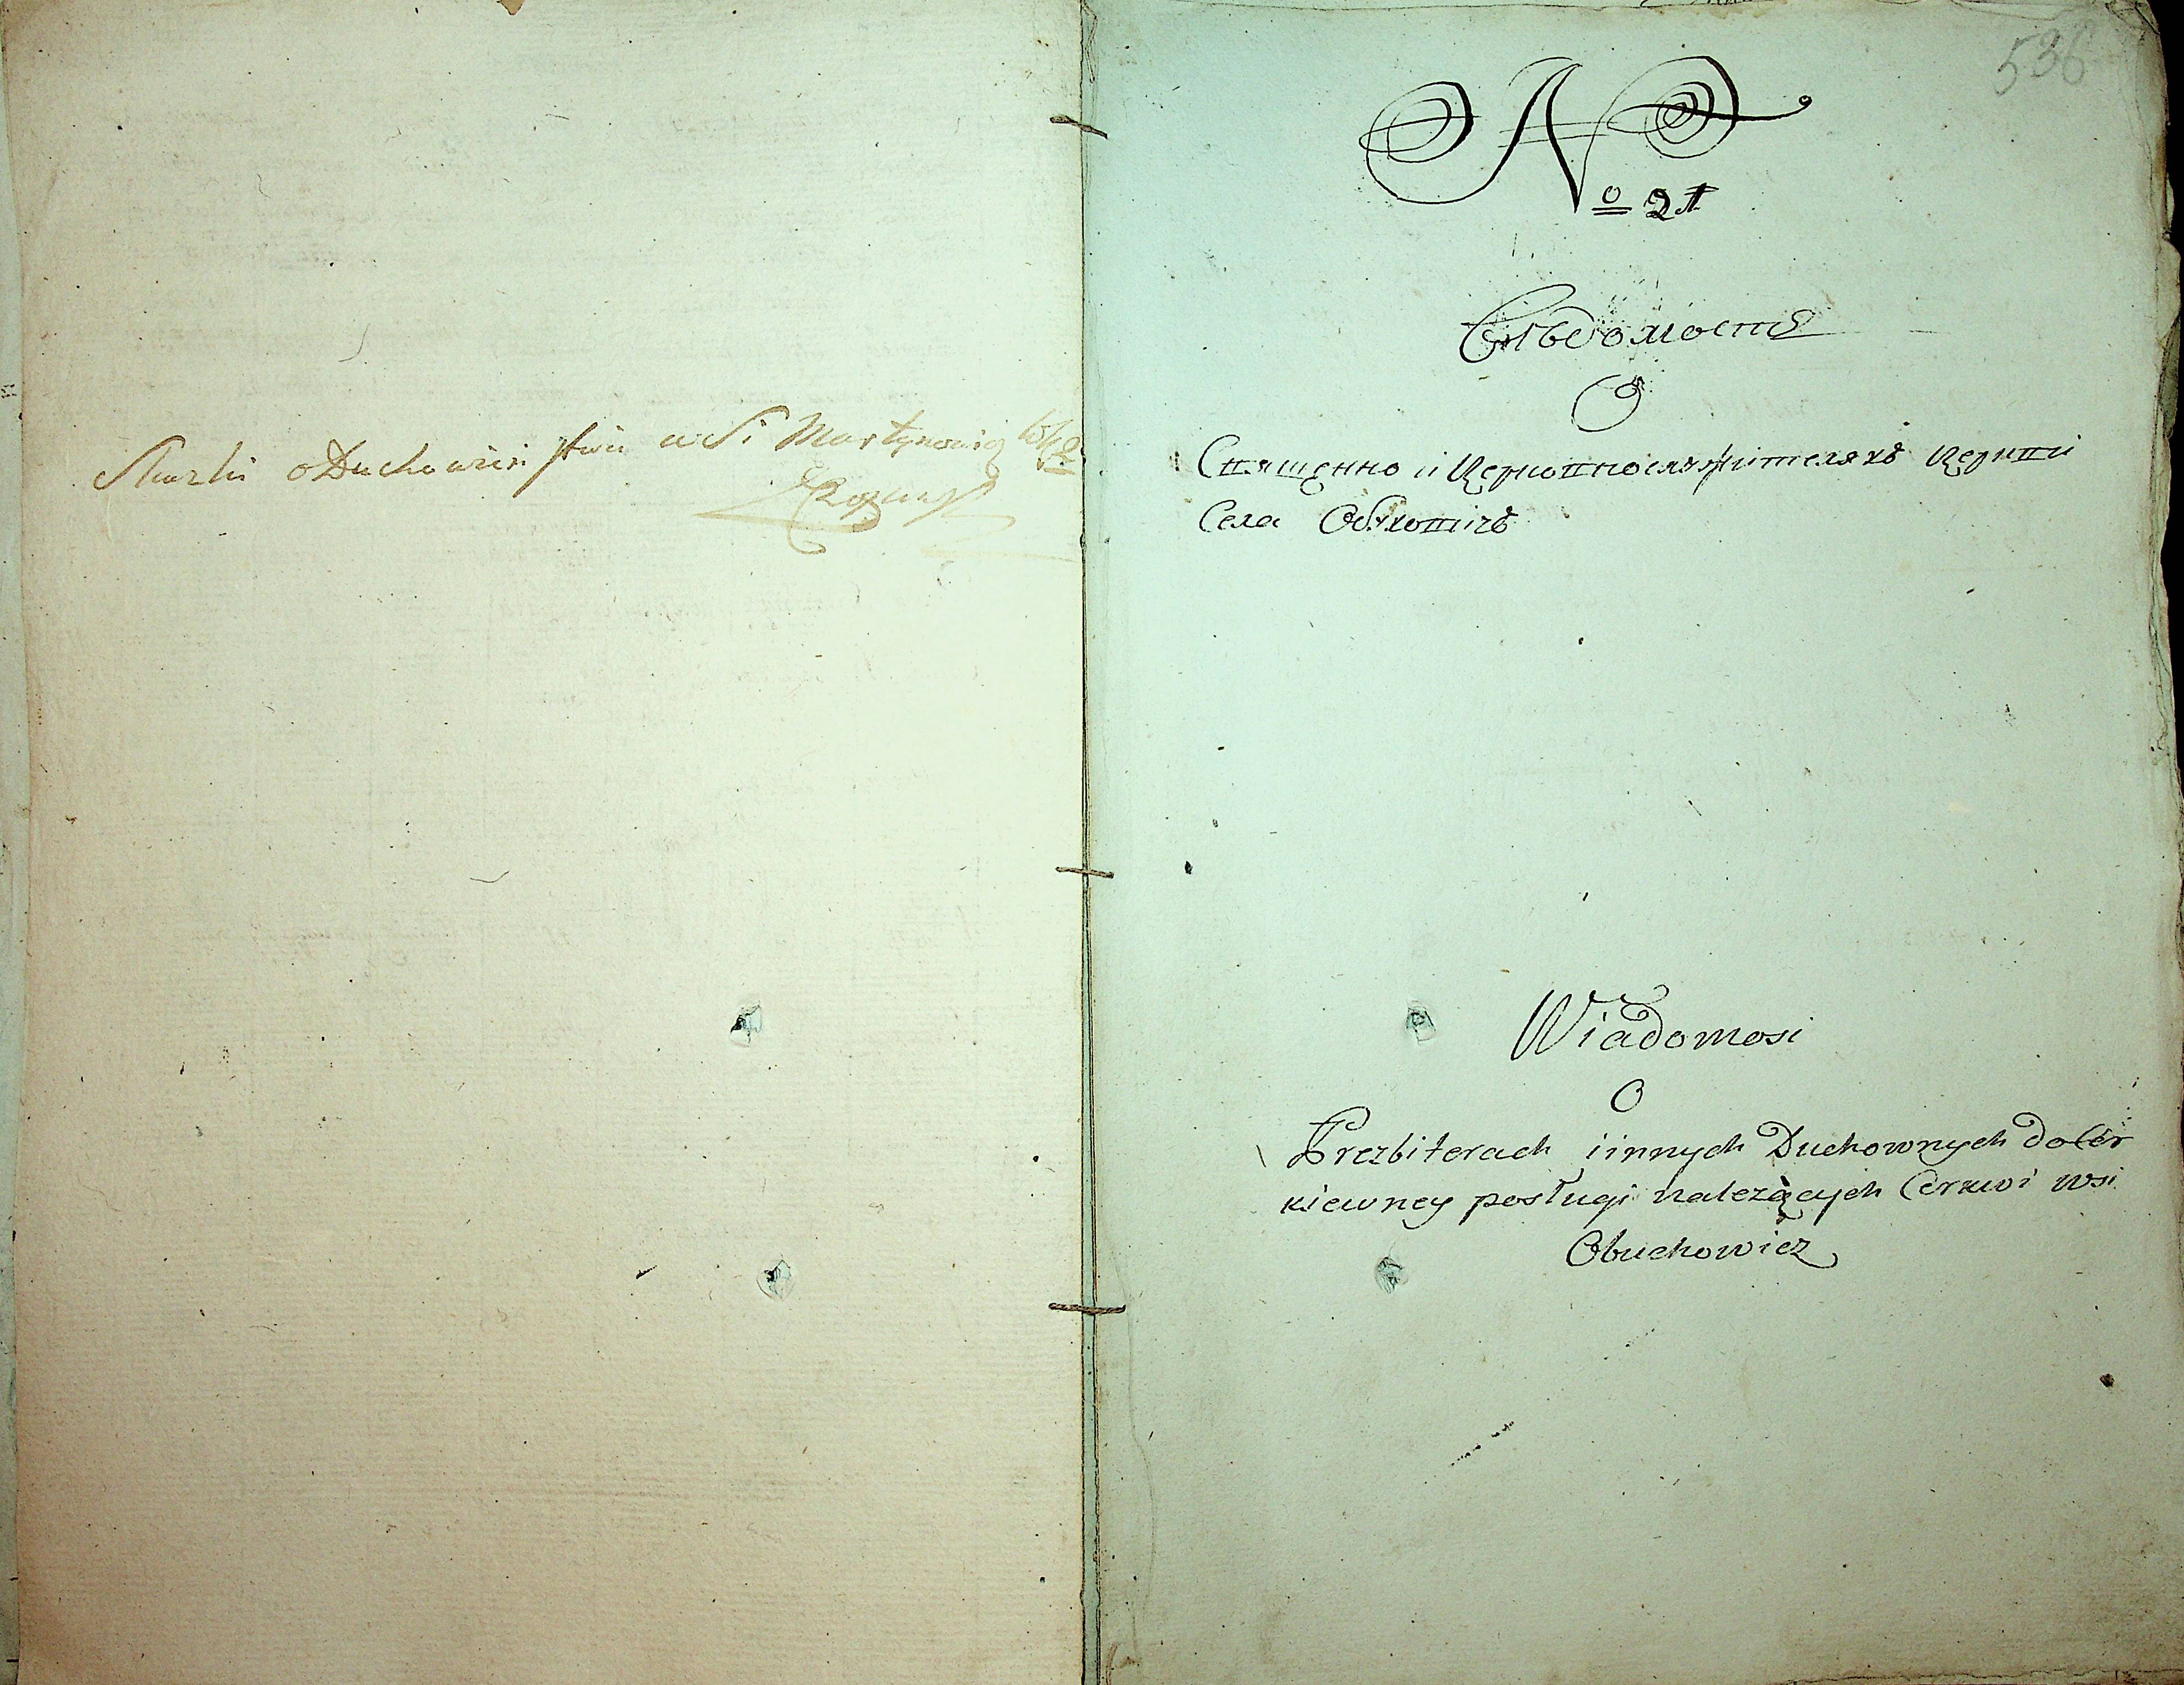 o Duchowień stwie w Si Martynowicz
536
No 21
Свѣдомость
О
Священно и Церковнослужителяхъ Церкви
Села Обуховичъ
Wiadomosi
O
Prezbiterach i innych Duchownych do Cer
kiewney posługi należących Cerkwi wsi
Obuchowicz